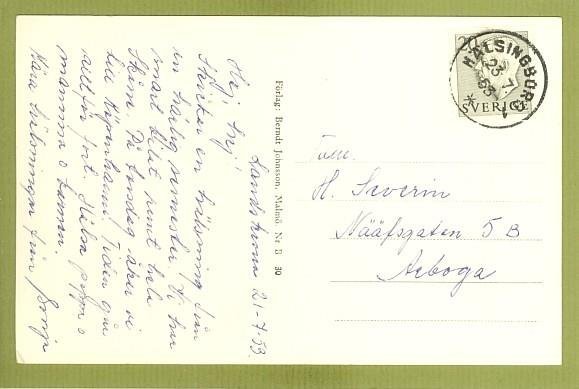 Landskrona 21-7-53.
Hej, hej!
Skickar en hälsning från
en härlig semester. Vi har
smort bilat runt hela
Skåne. På torsdag åker vi
till Köpenhamn. Tiden går
alltför fort. Hälsa pappa o
mamma o
Kära hälsningar från
Förlag: Berndt Johnsson, Malmö Nr B 30
20
HÄLSINGBORG 1
23 7
53
SVERIGE
H. Severin
Nääfsgatan 5 B
Arboga